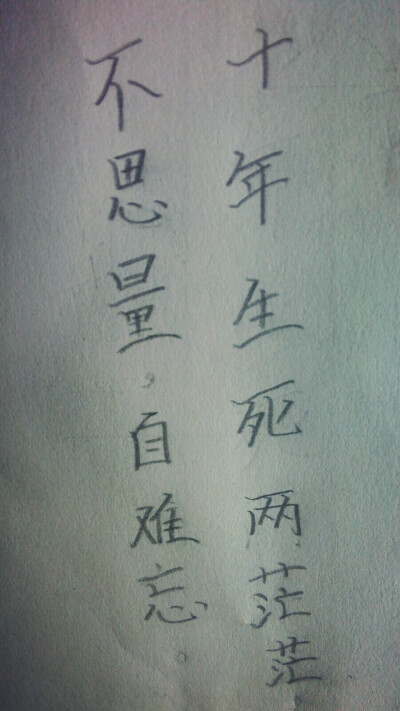 十年生死两茫茫。
不思量，自难忘。